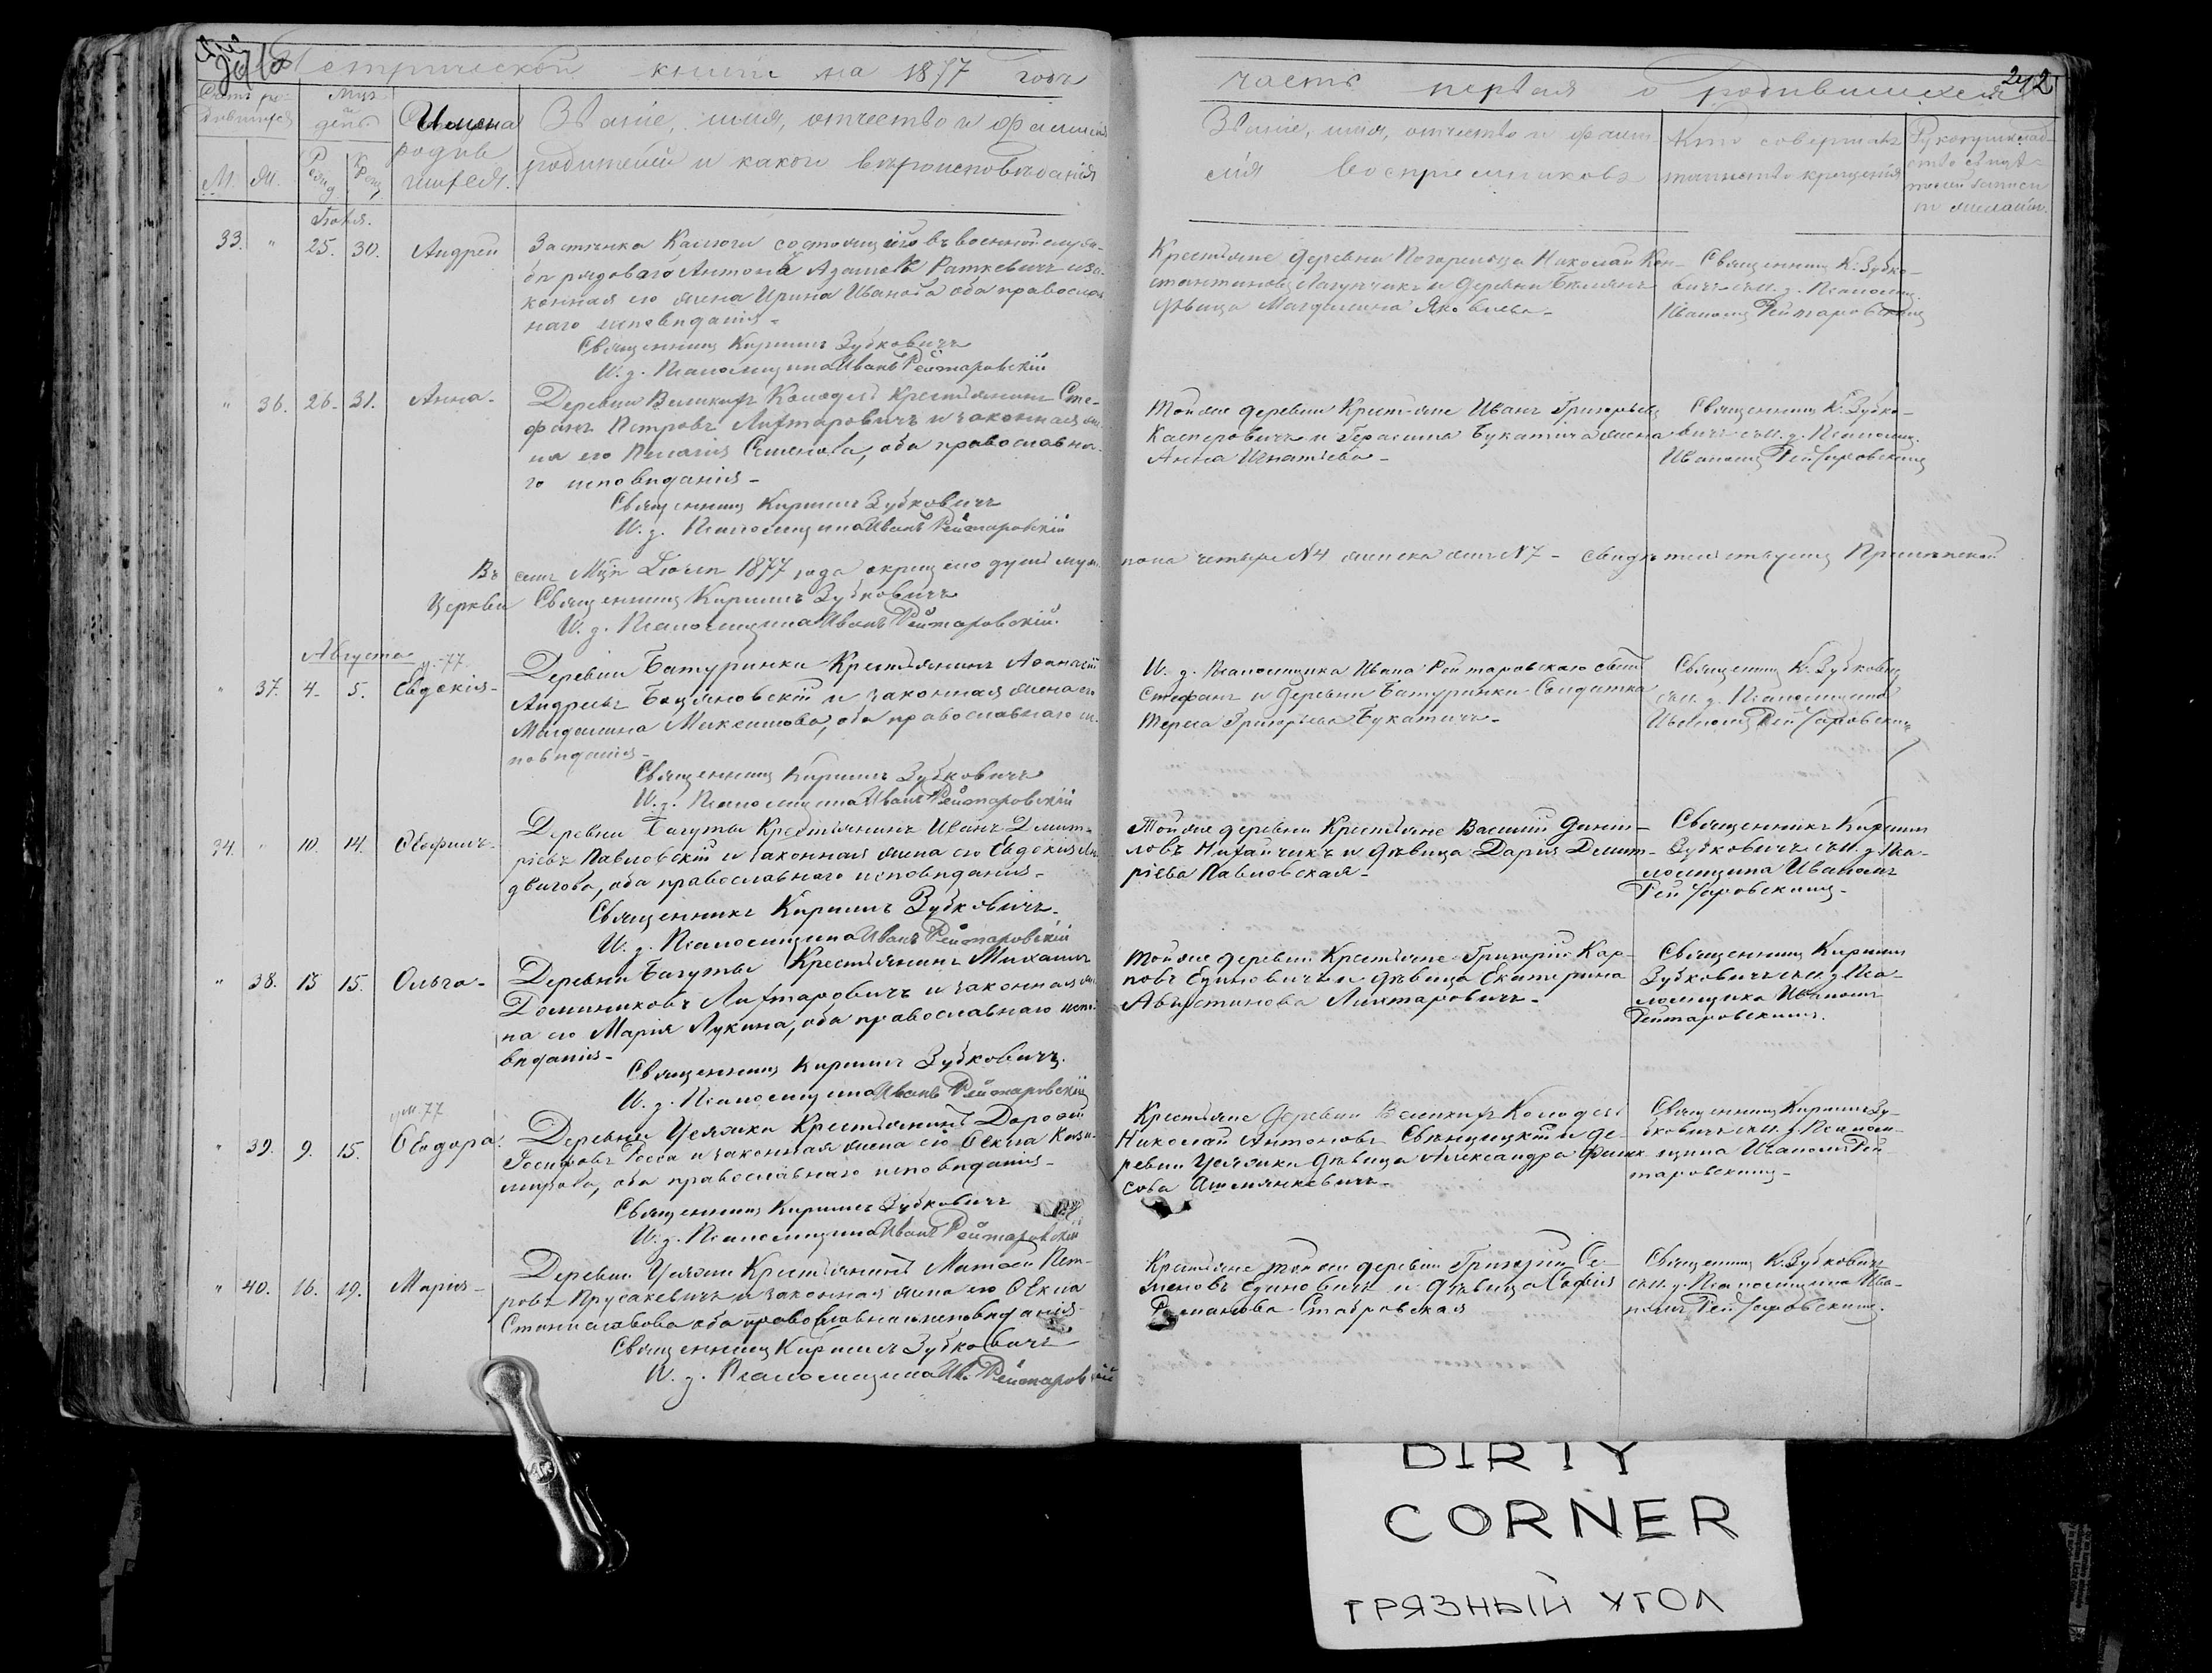 Метрической книги на 1877 годъ
часть первая о родившихся
242
Мцъ
и
день
Имена
родив
шихся.
Званіе, имя, отчество и фамилія
родителей и какого вѣроисповѣданія
Званіе, имя, отчество и фами
лія воспріемниковъ
Кто совершалъ
таинство крещенія
Рукоприклад
ство свидѣ
телей записи
по желанію.
М. Ж.
Іюля.
33. " 25. 30. Андрей
Застѣнка Калюги состоящаго въ военной служ-
бѣ рядоваго Антона Адамовъ Раткевичъ и за-
конная его жена Ирина Иванова оба православ
наго исповѣданія -
Священникъ Кириллъ Зубковичъ
И. д. Псаломщика Иванъ Рейтаровскій
Крестьяне деревни Погорельца Николай Кон-
стантиновъ и деревни
дѣвица Магдалина Яковлева -
Священникъ К. Зубко-
вичъ съ И. д. Псаломщ.
Иваномъ Рейтаровскимъ
" 36. 26. 31. Анна -
Деревни Великихъ Колодезей Крестьянинъ Сте-
фанъ Петровъ Лихтаровичъ и законная же-
на его Пелагія Семенова, оба православна-
го исповѣданія -
Священникъ Кириллъ Зубковичъ
И. д. Псаломщика Иванъ Рейтаровскій
Той же деревни Крестьяне Иванъ Григорьевъ
Касперовичъ и Герасима Букатича жена
Анна Игнатьева -
Священникъ К. Зубко-
вичъ съ И. д. Псаломщ.
Иваномъ Рейтаровскимъ
Въ семъ Мцѣ Іюлѣ 1877 года окрещено душъ муж.
пола четыре N4 женска семь N7 - свидѣтельствуемъ
Церкви Священникъ Кириллъ Зубковичъ
И. д. Псаломщика Иванъ Рейтаровскій.
Августа
" 37. 4. 5. Евдокія -
Деревни Батуринки Крестьянинъ Афанасій
Андреевъ Боцяновскій и законная жена его
Магдалина Максимова, оба православнаго ис
повѣданія -
Священникъ Кириллъ Зубковичъ
И. д. Псаломщика Иванъ Рейтаровскій
И. д. Псаломщика Ивана Рейтаровскаго сынъ
Стефанъ и деревни Батуринки Солдатка
Тереса Григорьева Букатичъ -
Священникъ К. Зубковичъ
съ И. д. Псаломщика
Иваномъ Рейтаровскимъ
34. " 10. 14.
Деревни Багуты Крестьянинъ Иванъ Дмит-
ріевъ Павловскій и законная жена его Евдокія Лю
двигова, оба православнаго исповѣданія -
Священникъ Кириллъ Зубковичъ.
И. д. Псаломщика Иванъ Рейтаровскій
Той же деревни Крестьяне Василій Данiи-
ловъ Нихайчикъ и дѣвица Дарія Дмит-
ріева Павловская -
Священникъ Кириллъ
Зубковичъ съ И. д. Пса-
ломщика Иваномъ
Рейтаровскимъ -
" 38. 13 15. Ольга -
Деревни Багуты Крестьянинъ Михаилъ
Доминиковъ Лихтаровичъ и законная же
на его Марія Лукина, оба православнаго испо-
вѣданія -
Священникъ Кириллъ Зубковичъ.
И. д. Псаломщика Иванъ Рейтаровскій
Той же деревни Крестьяне Григорій Кар-
повъ Единовичъ и дѣвица Екатерина
Августинова Лихтаровичъ -
Священникъ Кириллъ
Зубковичъ съ И. д. Пса-
ломщика Иваномъ
Рейтаровскимъ.
ум. 77
" 39. 9. 15. Ѳеодора.
Деревни Уселюки Крестьянинъ Дорофей
Іосифовъ Росса и законная жена его Ѳекла Кази-
мірова, оба православнаго исповѣданія -
Священникъ Кириллъ Зубковичъ
И. д. Псаломщика Иванъ Рейтаровскій
Крестьяне деревни Великихъ Колодезей
Николай Антоновъ Свѣнцицкій и де-
ревни Уселюки дѣвица Александра
сова
Священникъ Кириллъ Зу-
бковичъ съ И. д. Псалом-
щика Иваномъ Рей-
таровскимъ -
" 40. 16. 19. Марія -
Деревни Уселюки Крестьянинъ Матѳей Пет-
ровъ Прусакевичъ и законная жена его Ѳекла
Станиславова оба православнаго исповѣданія
Священникъ Кириллъ Зубковичъ
И. д. Псаломщика Ив. Рейтаровскій
Крестьяне той же деревни Григорій Се-
меновъ Единовичъ и дѣвица Софія
Романова Стабровская
Священникъ К. Зубковичъ
съ И. д. Псаломщика Ива-
номъ Рейтаровскимъ.
DIRTY
CORNER
ГРЯЗНЫЙ УГОЛ